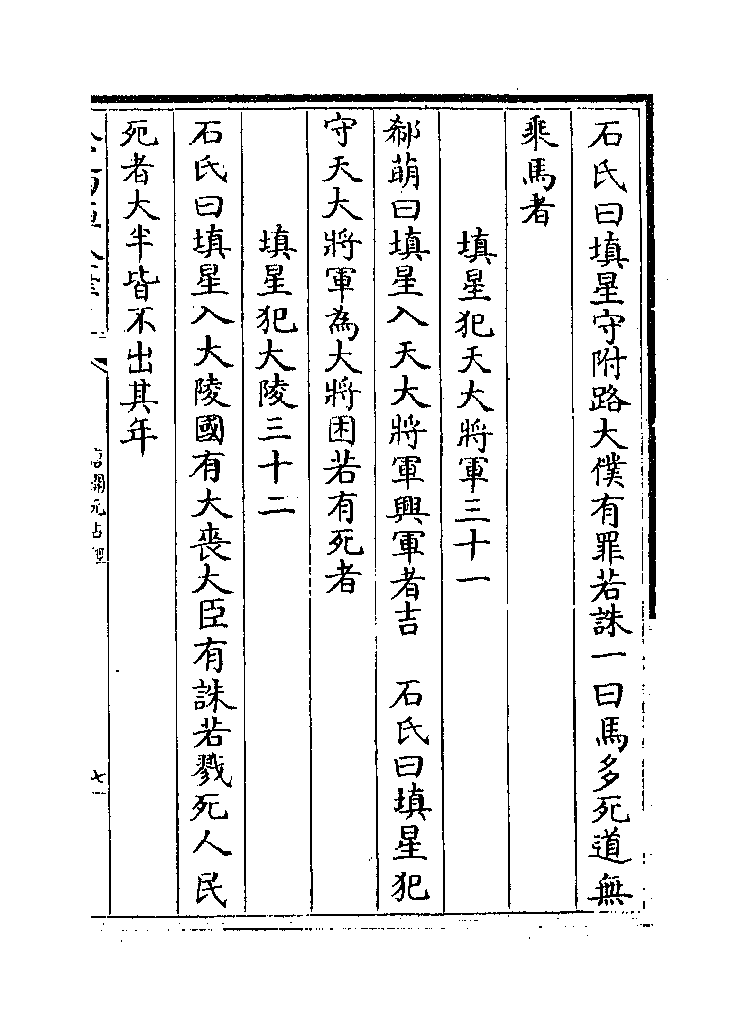 石氏曰填星守附路大僕有罪若誅一曰馬多死道無
乘馬者
填星犯天大將軍三十一
郗萌曰填星入天大將軍興軍者吉　石氏曰填星犯
守天大將軍為大將困若有死者
填星犯大陵三十二
石氏曰填星入大陵國有大喪大臣有誅若戮死人民
死者大半皆不出其年